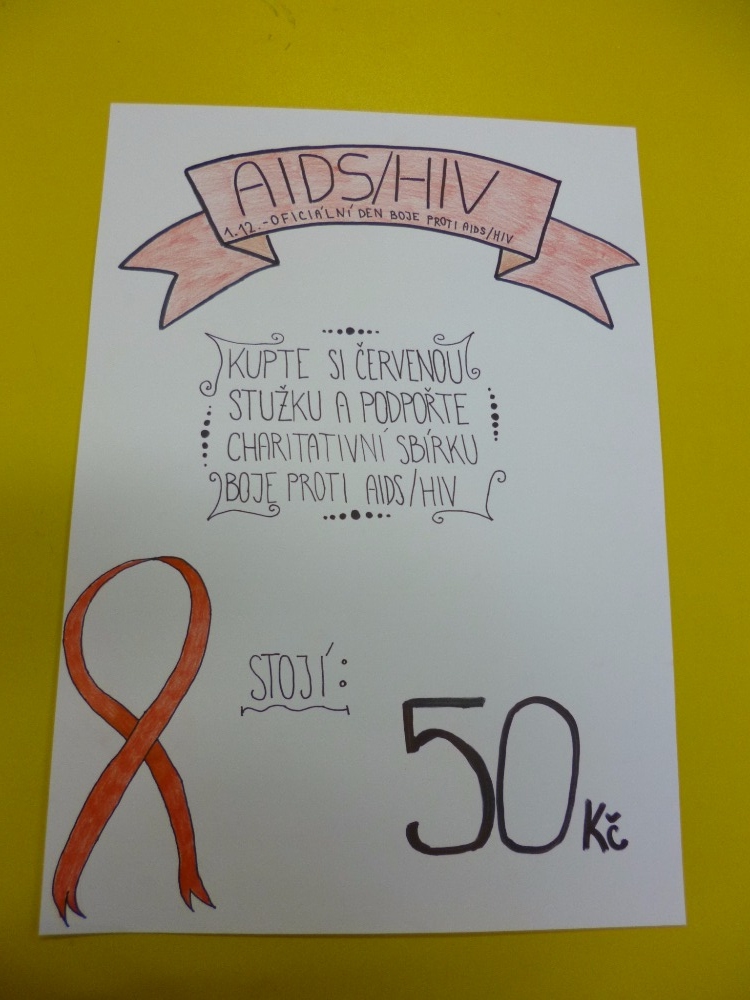 AIDS/HIV
1.12.-OFICIÁLNÍ DEN BOJE PROTI AIDS/HIV
KUPTE SI ČERVENOU
STUŽKU A PODPOŘTE
CHARITATIVNÍ SBÍRKU
BOJE PROTI AIDS/HIV
STOJÍ:
50 Kč